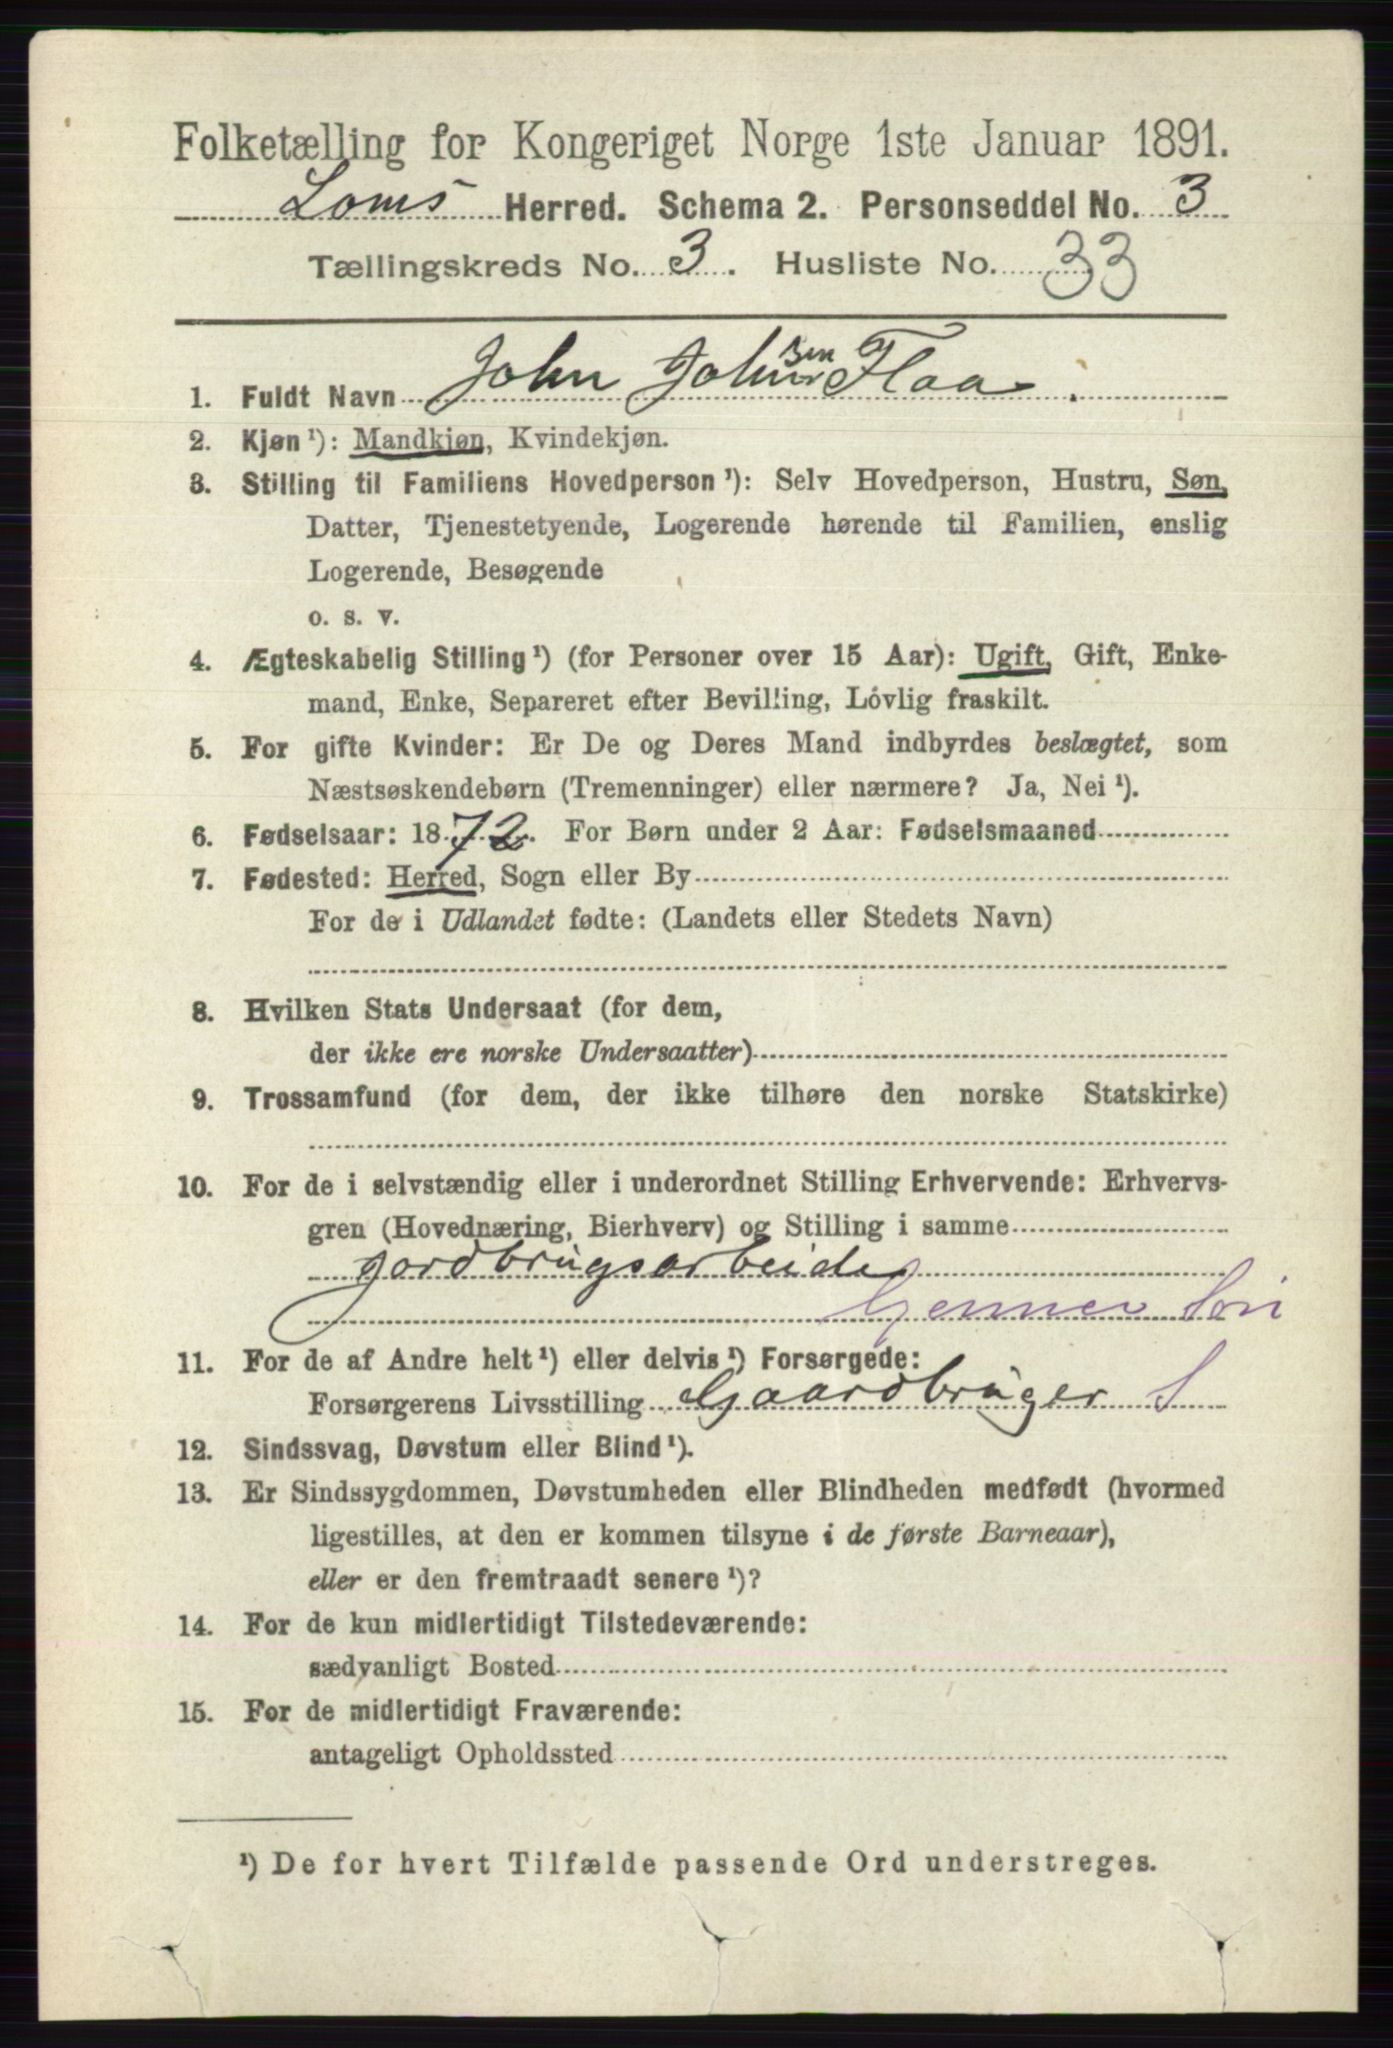 Folketælling for Kongeriget Norge 1ste Januar 1891.
Loms Herred. Schema 2. Personseddel No. 3
Tællingskreds No. 3. Husliste No. 33
1. Fuldt Navn John Johnsen Flaa.
2. Kjøn ¹): Mandkjøn, Kvindekjøn.
3. Stilling til Familiens Hovedperson ¹): Selv Hovedperson, Hustru, Søn,
Datter, Tjenestetyende, Logerende hørende til Familien, enslig
Logerende, Besøgende
o. s. v.
4. Ægteskabelig Stilling ¹) (for Personer over 15 Aar): Ugift, Gift, Enke-
mand, Enke, Separeret efter Bevilling, Lovlig fraskilt.
5. For gifte Kvinder: Er De og Deres Mand indbyrdes beslægtet, som
Næstsøskendebørn (Tremenninger) eller nærmere? Ja, Nei ¹).
6. Fødselsaar: 1872. For Børn under 2 Aar: Fødselsmaaned
7. Fødested: Herred, Sogn eller By
For de i Udlandet fødte: (Landets eller Stedets Navn)
8. Hvilken Stats Undersaat (for dem,
der ikke ere norske Undersaatter)
9. Trossamfund (for dem, der ikke tilhøre den norske Statskirke)
10. For de i selvstændig eller i underordnet Stilling Erhvervende: Erhvervs-
gren (Hovednæring, Bierhverv) og Stilling i samme
Jordbrugsarbeide
11. For de af Andre helt ¹) eller delvis ¹) Forsørgede:
Forsørgerens Livsstilling Gaardbruger S
12. Sindssvag, Døvstum eller Blind ¹).
13. Er Sindssygdommen, Døvstumheden eller Blindheden medfødt (hvormed
ligestilles, at den er kommen tilsyne i de første Barneaar),
eller er den fremtraadt senere ¹)?
14. For de kun midlertidigt Tilstedeværende:
sædvanligt Bosted
15. For de midlertidigt Fraværende:
antageligt Opholdssted
¹) De for hvert Tilfælde passende Ord understreges.